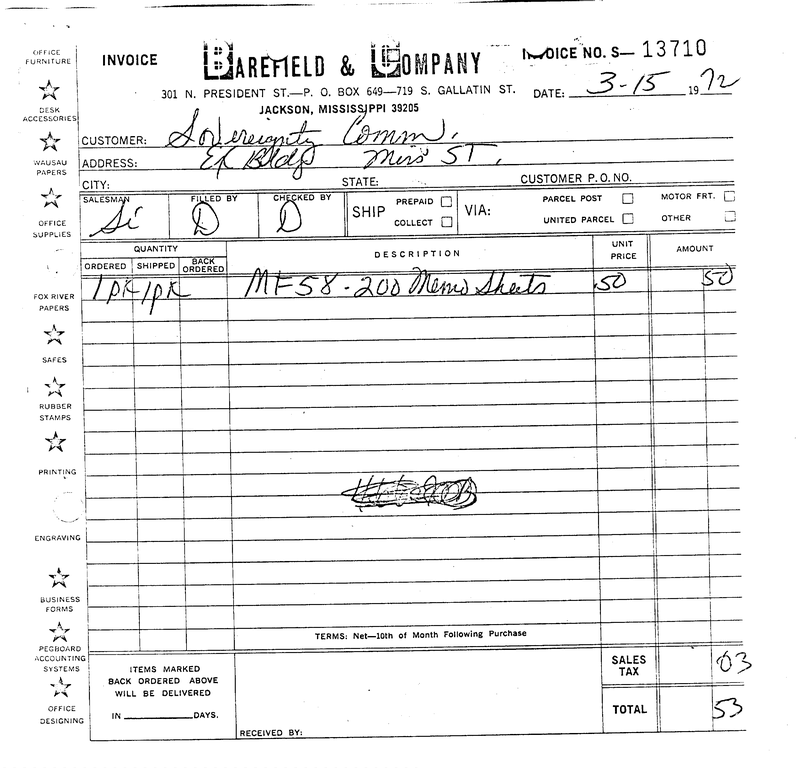 INVOICE
BAREFIELD & COMPANY
INVOICE NO. S— 13710
301 N. PRESIDENT ST.—P. O. BOX 649—719 S. GALLATIN ST.
DATE: 3-15 1972
JACKSON, MISSISSIPPI 39205
CUSTOMER: Sovereignty Comm.
ADDRESS: Ex Bldg Miss ST.
CITY: STATE: CUSTOMER P.O. NO.
SALESMAN FILLED BY CHECKED BY SHIP PREPAID COLLECT VIA: PARCEL POST MOTOR FRT. UNITED PARCEL OTHER
Si D D
QUANTITY DESCRIPTION UNIT PRICE AMOUNT
ORDERED SHIPPED BACK ORDERED
1 pk 1 pk MF58 - 200 Memo Sheets 50 50
TERMS: Net—10th of Month Following Purchase
ITEMS MARKED
BACK ORDERED ABOVE
WILL BE DELIVERED
IN DAYS.
RECEIVED BY:
SALES TAX 03
TOTAL 53
OFFICE
FURNITURE
DESK
ACCESSORIES
WAUSAU
PAPERS
OFFICE
SUPPLIES
FOX RIVER
PAPERS
SAFES
RUBBER
STAMPS
PRINTING
ENGRAVING
BUSINESS
FORMS
PEGBOARD
ACCOUNTING
SYSTEMS
OFFICE
DESIGNING